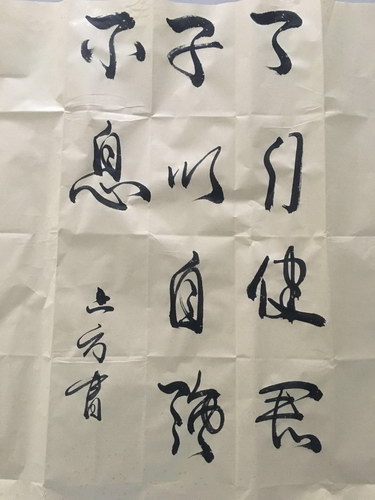 天行健君
子以自强
不息
方書